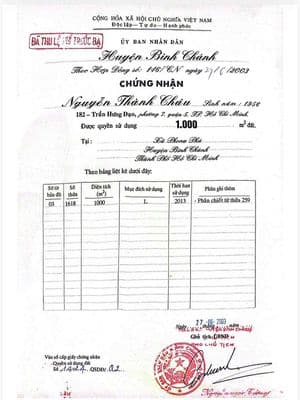 CỘNG HÒA XÃ HỘI CHỦ NGHĨA VIỆT NAM
Độc lập - Tự do - Hạnh phúc
ĐÃ THU LỆ PHÍ TRƯỚC BẠ
ỦY BAN NHÂN DÂN
Huyện Bình Chánh
Theo Hợp Đồng số: 116/CN ngày 27/6/2003
CHỨNG NHẬN
Nguyễn Thành Châu Sinh năm: 1956
182 - Trần Hưng Đạo, phường 7, quận 5, TP. Hồ Chí Minh.
Được quyền sử dụng 1.000 m² đất.
Tại: Xã Phong Phú
Huyện Bình Chánh
Thành Phố Hồ Chí Minh
Theo bảng liệt kê dưới đây:
Số tờ bản đồ Số thửa Diện tích (m²) Mục đích sử dụng Thời hạn sử dụng Phần ghi thêm
03 1618 1000 L 2013 - Phân chiết từ thửa 259
Ngày 27 -06- 2003
CHỦ TỊCH
Vào sổ cấp giấy chứng nhận
Quyền sử dụng đất
Số QSDĐ/